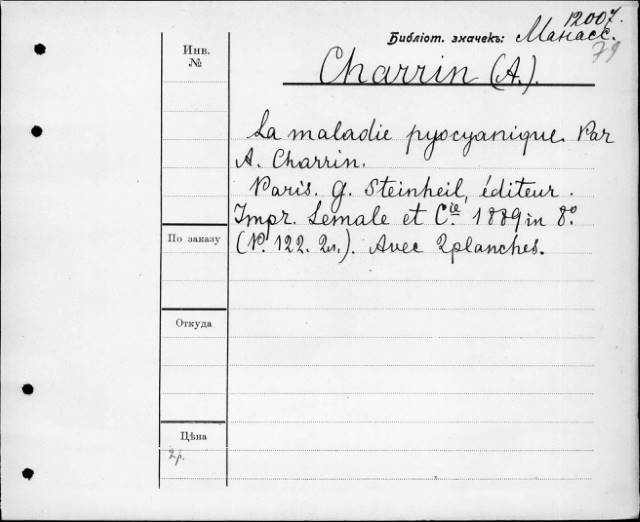 12007.
Библіот. значекъ: Манасс.
79
Инв.
№
Charrin (A.).
La maladie pyocyanique. Par
A. Charrin.
Paris. G. Steinheil, éditeur.
Impr. Lemale et Cie 1889 in 8º
(P. 122. 2л.). Avec 2 planches.
По заказу
Откуда
Цѣна
2р.